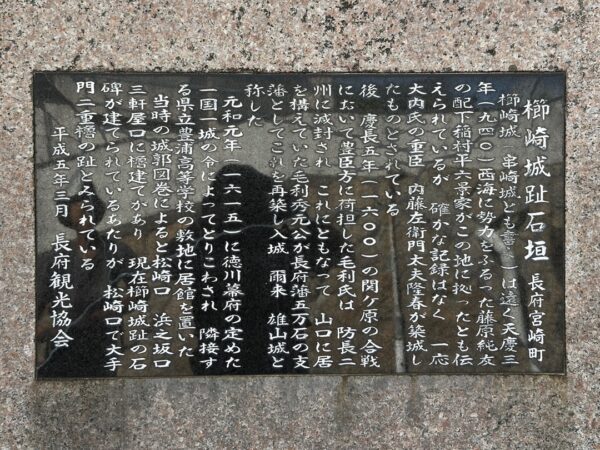 櫛崎城趾石垣 長府宮崎町
櫛崎城(串崎城とも書く)は遠く天慶三
年(九四〇)西海に勢力をふるった藤原純友
の配下稲村平六景家がこの地に拠ったとも伝
えられているが 確かな記録はなく 一応
大内氏の重臣 内藤左衛門太夫隆春が築城し
たものとされている
後 慶長五年(一六〇〇)の関ヶ原の合戦
において豊臣方に荷担した毛利氏は 防長二
州に減封され これにともなって 山口に居
を構えていた毛利秀元公が長府藩五万石の支
藩としてこれを再築し入城 爾来 雄山城と
称した
元和元年(一六一五)に徳川幕府の定めた
一国一城の令によってとりこわされ 隣接す
る県立豊浦高等学校の敷地に居館を置いた
当時の城郭図巻によると松崎口 浜之坂口
三軒屋口に櫓建てがあり 現在櫛崎城趾の石
碑が建てられているあたりが 松崎口で大手
門二重櫓の趾とみられている
平成五年三月 長府観光協会